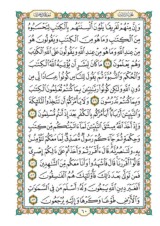 وَإِنَّ مِنْهُمْ لَفَرِيقًا يَلْوُونَ أَلْسِنَتَهُم بِالْكِتَٰبِ لِتَحْسَبُوهُ
مِنَ الْكِتَٰبِ وَمَا هُوَ مِنَ الْكِتَٰبِ وَيَقُولُونَ هُوَ
مِنْ عِندِ اللَّهِ وَمَا هُوَ مِنْ عِندِ اللَّهِ وَيَقُولُونَ عَلَى اللَّهِ الْكَذِبَ
وَهُمْ يَعْلَمُونَ مَا كَانَ لِبَشَرٍ أَن يُؤْتِيَهُ اللَّهُ الْكِتَٰبَ
وَالْحُكْمَ وَالنُّبُوَّةَ ثُمَّ يَقُولَ لِلنَّاسِ كُونُوا عِبَادًا لِّي مِن
دُونِ اللَّهِ وَلَٰكِن كُونُوا رَبَّٰنِيِّينَ بِمَا كُنتُمْ تُعَلِّمُونَ الْكِتَٰبَ
وَبِمَا كُنتُمْ تَدْرُسُونَ وَلَا يَأْمُرَكُمْ أَن تَتَّخِذُوا الْمَلَٰئِكَةَ
وَالنَّبِيِّينَ أَرْبَابًا أَيَأْمُرُكُم بِالْكُفْرِ بَعْدَ إِذْ أَنتُم مُّسْلِمُونَ
وَإِذْ أَخَذَ اللَّهُ مِيثَٰقَ النَّبِيِّينَ لَمَا ءَاتَيْتُكُم مِّن كِتَٰبٍ وَحِكْمَةٍ
ثُمَّ جَاءَكُمْ رَسُولٌ مُّصَدِّقٌ لِّمَا مَعَكُمْ لَتُؤْمِنُنَّ بِهِ وَلَتَنصُرُنَّهُ
قَالَ ءَأَقْرَرْتُمْ وَأَخَذْتُمْ عَلَىٰ ذَٰلِكُمْ إِصْرِي
قَالُوا أَقْرَرْنَا قَالَ فَاشْهَدُوا وَأَنَا مَعَكُم مِّنَ الشَّٰهِدِينَ
فَمَن تَوَلَّىٰ بَعْدَ ذَٰلِكَ فَأُولَٰئِكَ هُمُ الْفَٰسِقُونَ
أَفَغَيْرَ دِينِ اللَّهِ يَبْغُونَ وَلَهُ أَسْلَمَ مَن فِي السَّمَٰوَٰتِ
وَالْأَرْضِ طَوْعًا وَكَرْهًا وَإِلَيْهِ يُرْجَعُونَ